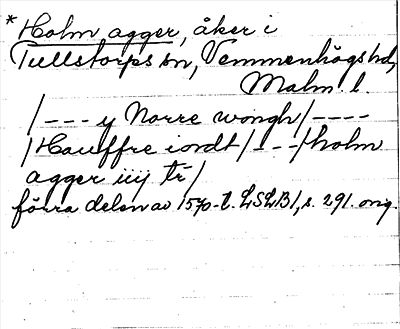 * Holm agger, åker i
Tullstorps sn, Vemmenhögs hd,
Malm. l.
/--- y Norre wongh/----
/Hauffre iordt/---/holm
agger iiij tr̄/
förra delen av 1570-t. LSLB1, s. 291. orig.